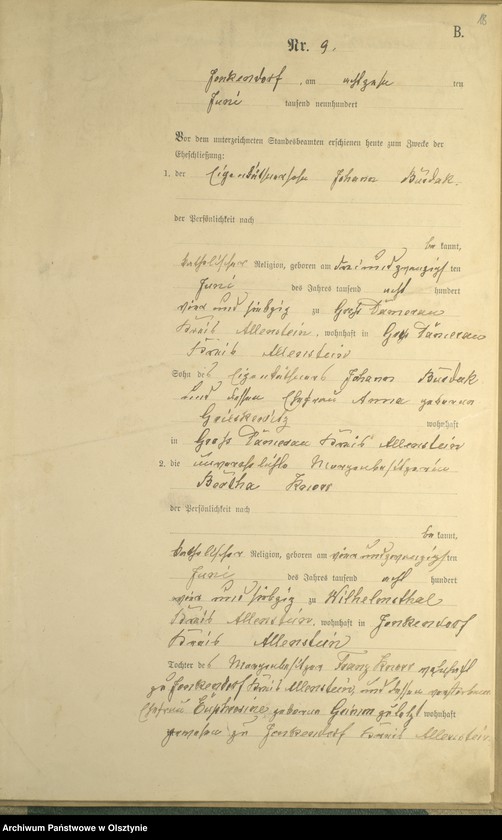 18
B.
Nr. 9.
Jonkendorf, am achtzehn ten
Juni tausend neunhundert
Vor dem unterzeichneten Standesbeamten erschienen heute zum Zwecke der
Eheschließung:
1. der Eigenthümersohn Johann Burdak.
der Persönlichkeit nach
be kannt,
katholischer Religion, geboren am dreiundzwanzigsten
Juni des Jahres tausend acht hundert
vier und siebzig zu Groß Damerau
Kreis Allenstein, wohnhaft in Groß Damerau
Kreis Allenstein
Sohn des Eigenthümers Johann Burdak
und dessen Ehefrau Anna geborene
wohnhaft
in Groß Damerau Kreis Allenstein
2. die unverehelichte Morgenbesitzerin
Bertha
der Persönlichkeit nach
be kannt,
katholischer Religion, geboren am vierundzwanzigsten
Juni des Jahres tausend acht hundert
vier und siebzig zu Wilhelmsthal
Kreis Allenstein, wohnhaft in Jonkendorf
Kreis Allenstein
Tochter des Morgenbesitzer Franz wohnhaft
zu Jonkendorf Kreis Allenstein und dessen verstorbenen
Ehefrau Euphrosine geborene Grimm zuletzt wohnhaft
gewesen zu Jonkendorf Kreis Allenstein
Archiwum Państwowe w Olsztynie